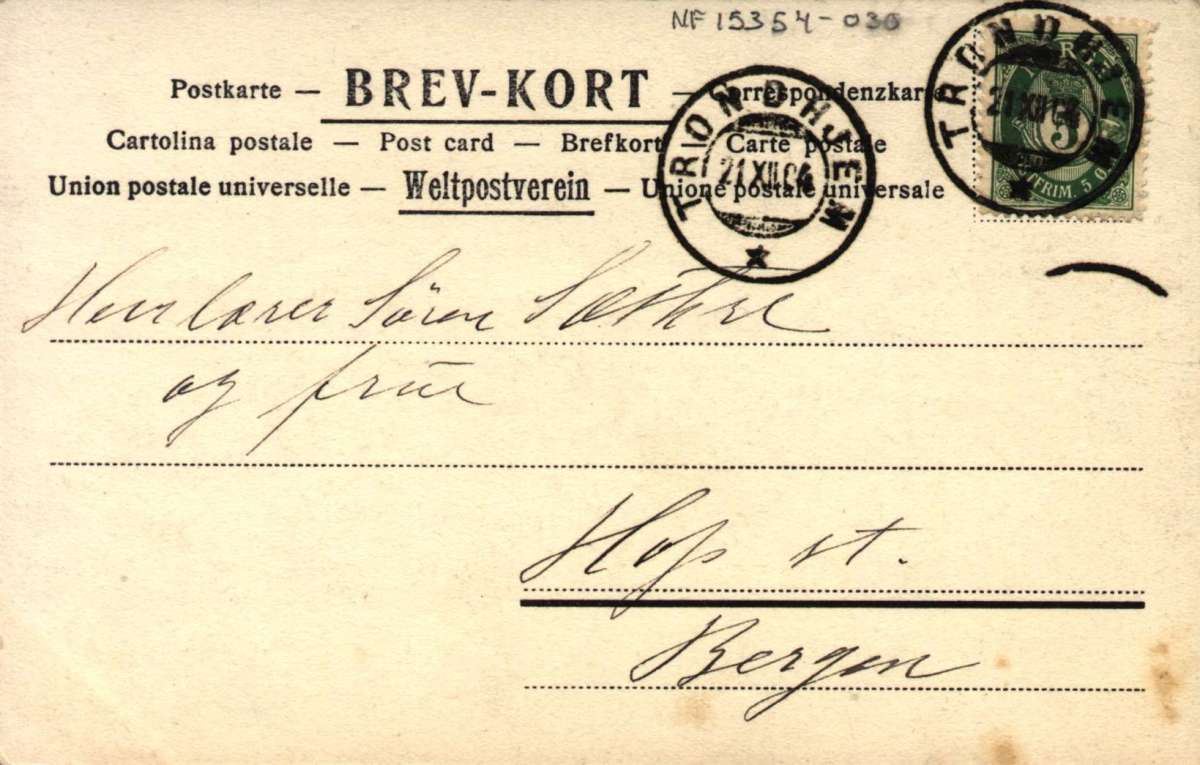 NF 15354-036
Postkarte — BREV-KORT — Correspondenzkarte
Cartolina postale — Post card — Brefkort — Carte postale
Union postale universelle — Weltpostverein — Unione postale universale
TRONDHJEM
21 XII 04
TRONDHJEM
21 XII 04
5
FRIM. 5 Ø
Herr lærer Sören Sæthre
og frue
Hop st.
Bergen